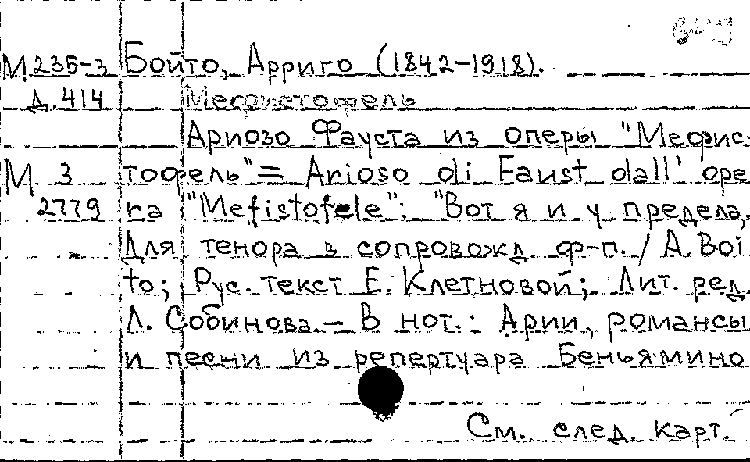 М 235-3 Бойто, Арриго (1842-1918).
д. 414 Мефистофель
Ариозо Фауста из оперы "Мефис-
М 3 тофель" = Arioso di Faust dall' ope
2779 ra "Mefistofele": "Вот я и у предела,
Для тенора в сопровожд. ф-п. / A. Boi
to; Рус. текст Е. Клетновой; Лит. ред.
Л. Собинова. - В нот.: Арии, романсы
и песни из репертуара Беньямино
См. след. карт.